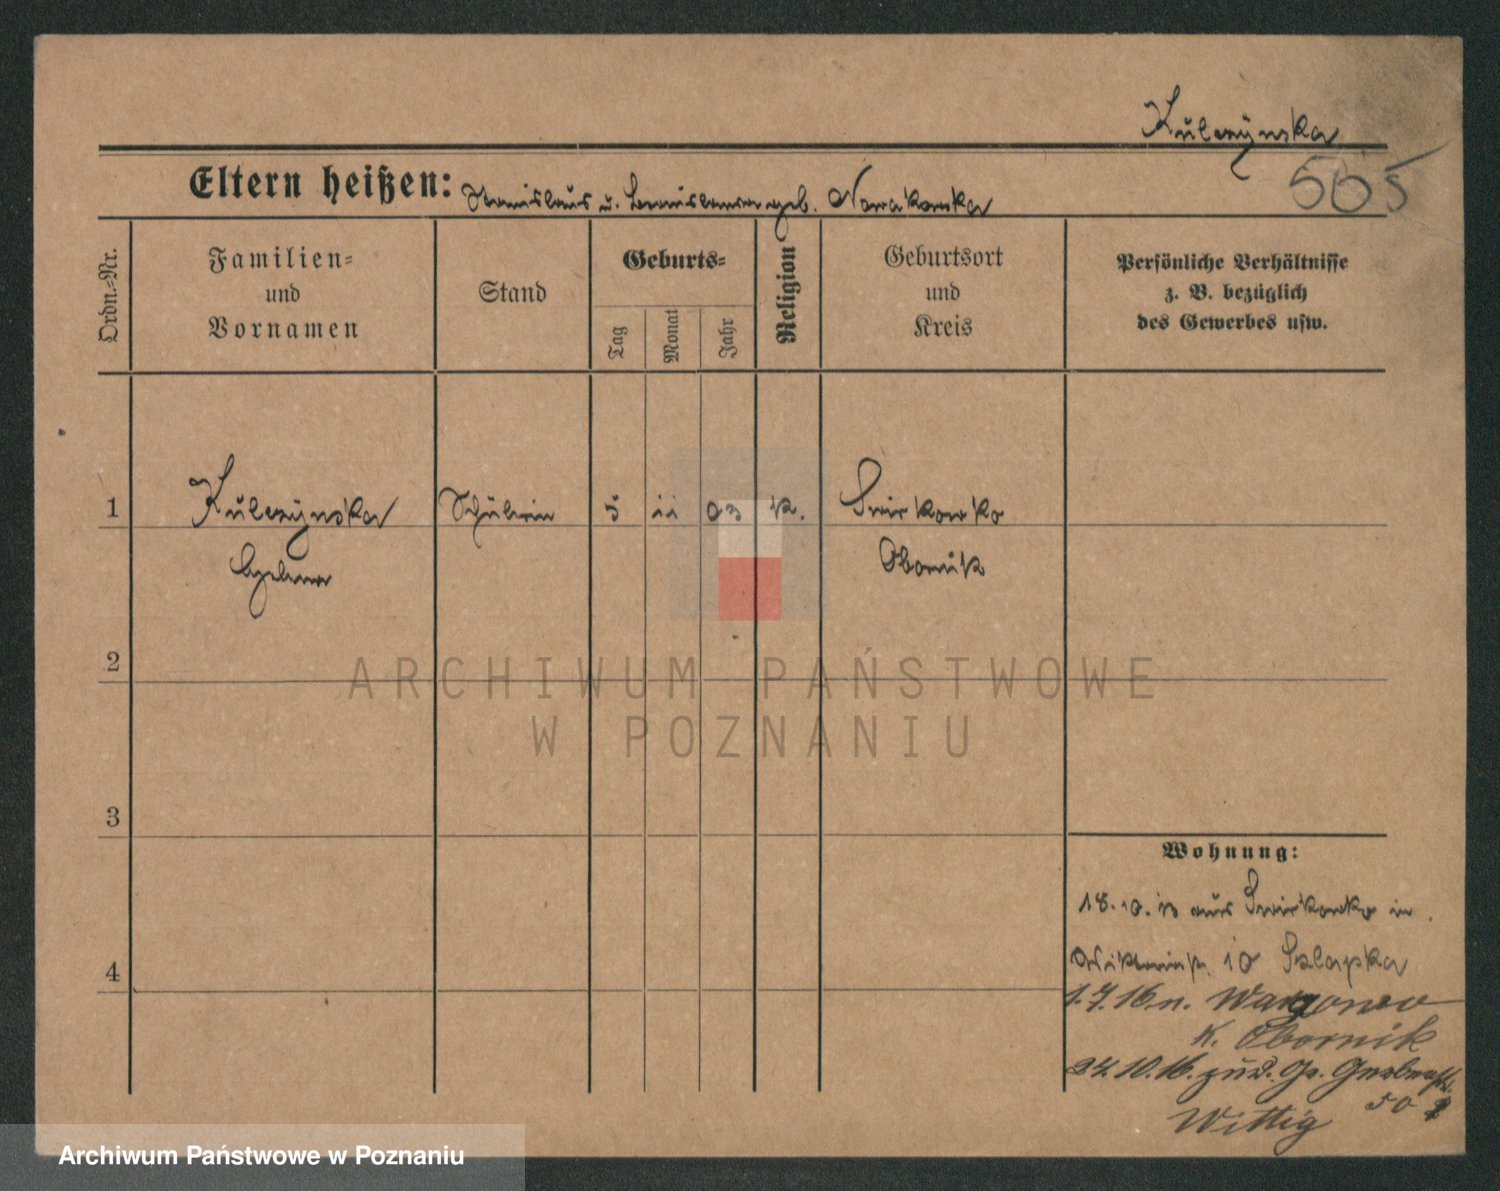 Kulczýnska
565
Eltern heißen: Stanislaus u. geb. Nowakowska
Ordn.=Nr.
Familien=
und
Vornamen
Stand
Geburts=
Tag
Monat
Jahr
Religion
Geburtsort
und
Kreis
Persönliche Verhältnisse
z. B. bezüglich
des Gewerbes usw.
1
Kulczýnska Schülerin 5 11 03 k.
Obornik
2
ARCHIWUM PAŃSTWOWE
W POZNANIU
3
Wohnung:
18.10.13 aus in
10 Szlapka
4
1.7.16 n.
K. Obornik
24.10.16. zur. Gr. 50
Wittig
Archiwum Państwowe w Poznaniu